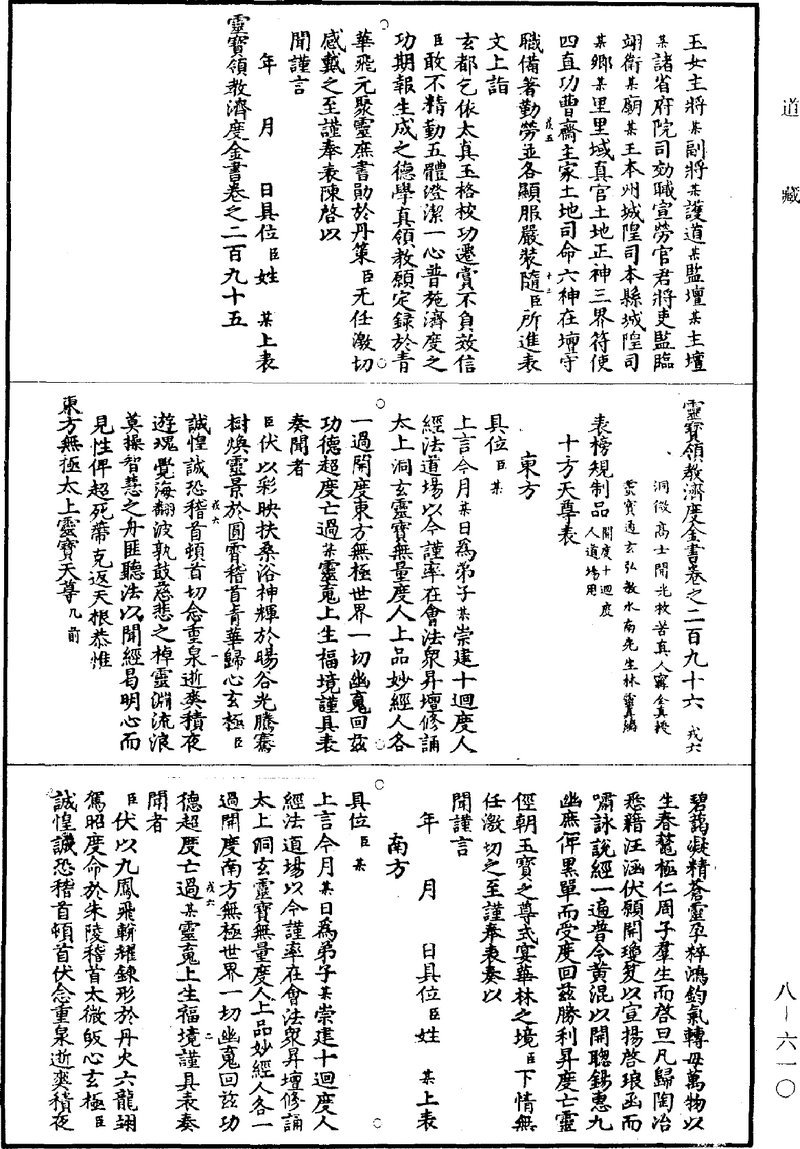 道藏
八-六一〇
玉女主將某副將某護道某監壇某主壇
某諸省府院司効職宣勞官君將吏監臨
翊衛某廟某王本州城隍司本縣城隍司
某鄉某里里域真官土地正神三界符使
四直功曹齋主家土地司命六神在壇守
職備著勤勞並各顯服嚴裝隨臣所進表
文上詣
玄都乞依太真玉格校功遷賞不負效信
臣敢不精勤五體澄潔一心普施濟度之
功期報生成之德學真領教願定録於青
華飛元聚靈庶書勛於丹策臣无任激切
感戴之至謹奉表陳啓以
聞謹言
年 月 日具位臣姓 某上表
靈寶領教濟度金書卷之二百九十五
靈寶領教濟度金書卷之二百九十六 戎六
洞微高士開光救苦真人甯全真授
靈寶通玄弘教水南先生林靈真編
表榜規制品 開度十迴度人道場用
十方天尊表
東方
具位臣某
上言今月某日為弟子某崇建十迴度人
經法道場以今謹率在會法衆昇壇修誦
太上洞玄靈寶無量度人上品妙經人各
一過開度東方無極世界一切幽䰟回兹
功德超度亡過某靈䰟上生福境謹具表
奏聞者
臣伏以彩映扶桑浴神輝於暘谷光騰騫
樹煥靈景於圓霄稽首青華歸心玄極臣
誠惶誠恐稽首頓首切念重泉逝爽積夜
遊魂覺海翻波孰鼓慈悲之棹靈淵流浪
莫操智慧之舟匪聽法以聞經曷明心而
見性俾超死蔕克返天根恭惟
東方無極太上靈寶天尊几前
碧藹凝精蒼靈孕粹鴻鈞氣轉毋萬物以
生春鼇極仁周子羣生而啓旦凡歸陶冶
悉藉汪涵伏願開瓊笈以宣揚啓琅函而
嘯詠說經一遍普令黄混以開聰錫惠九
幽庶俾黑單而受度回兹勝利昇度亡靈
徑朝玉寶之尊式宴華林之境臣下情無
任激切之至謹奉表奏以
聞謹言
年 月 日具位臣姓 某上表
南方
具位臣某
上言今月某日為弟子某崇建十迴度人
經法道場以今謹率在會法衆昇壇修誦
太上洞玄靈寶無量度人上品妙經人各一
過開度南方無極世界一切幽䰟回兹功
德超度亡過某靈䰟上生福境謹具表奏
聞者
臣伏以九鳳飛輈耀鍊形於丹火六龍翊
駕昭度命於朱陵稽首太微皈心玄極臣
誠惶誠恐稽首頓首伏念重泉逝爽積夜